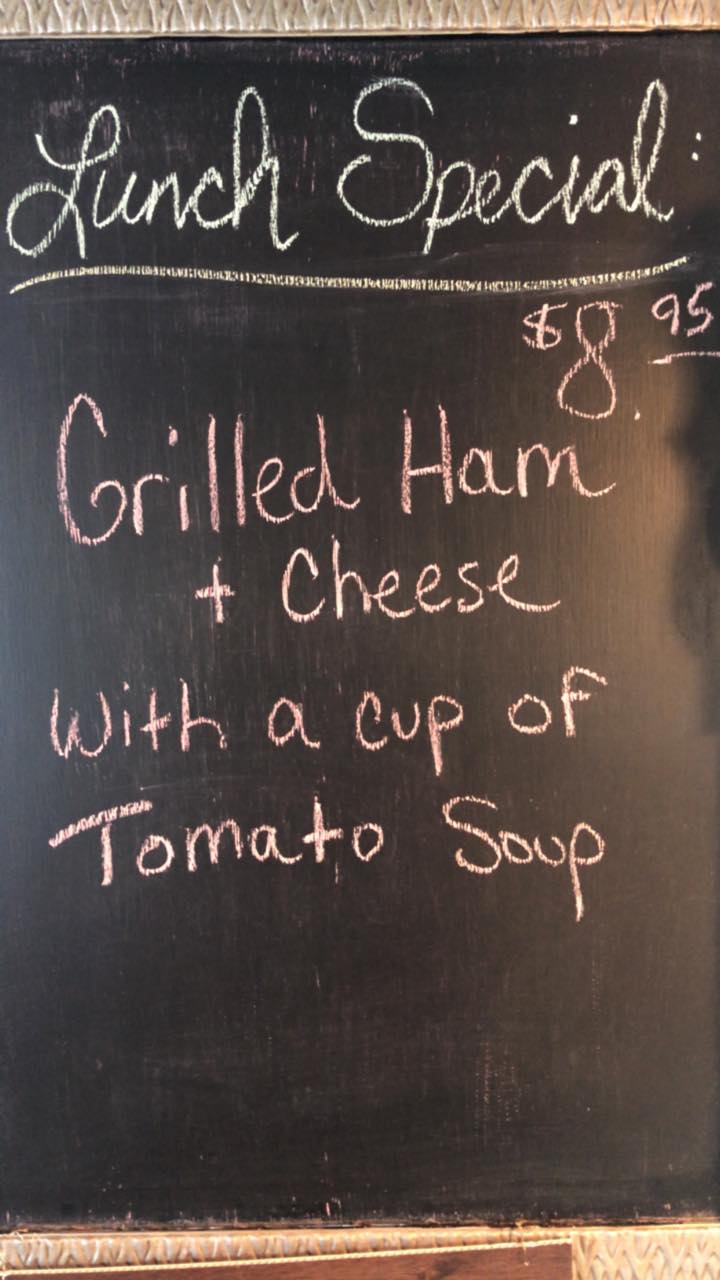 Lunch Special:
$8.95
Grilled Ham
+ Cheese
With a cup of
Tomato Soup